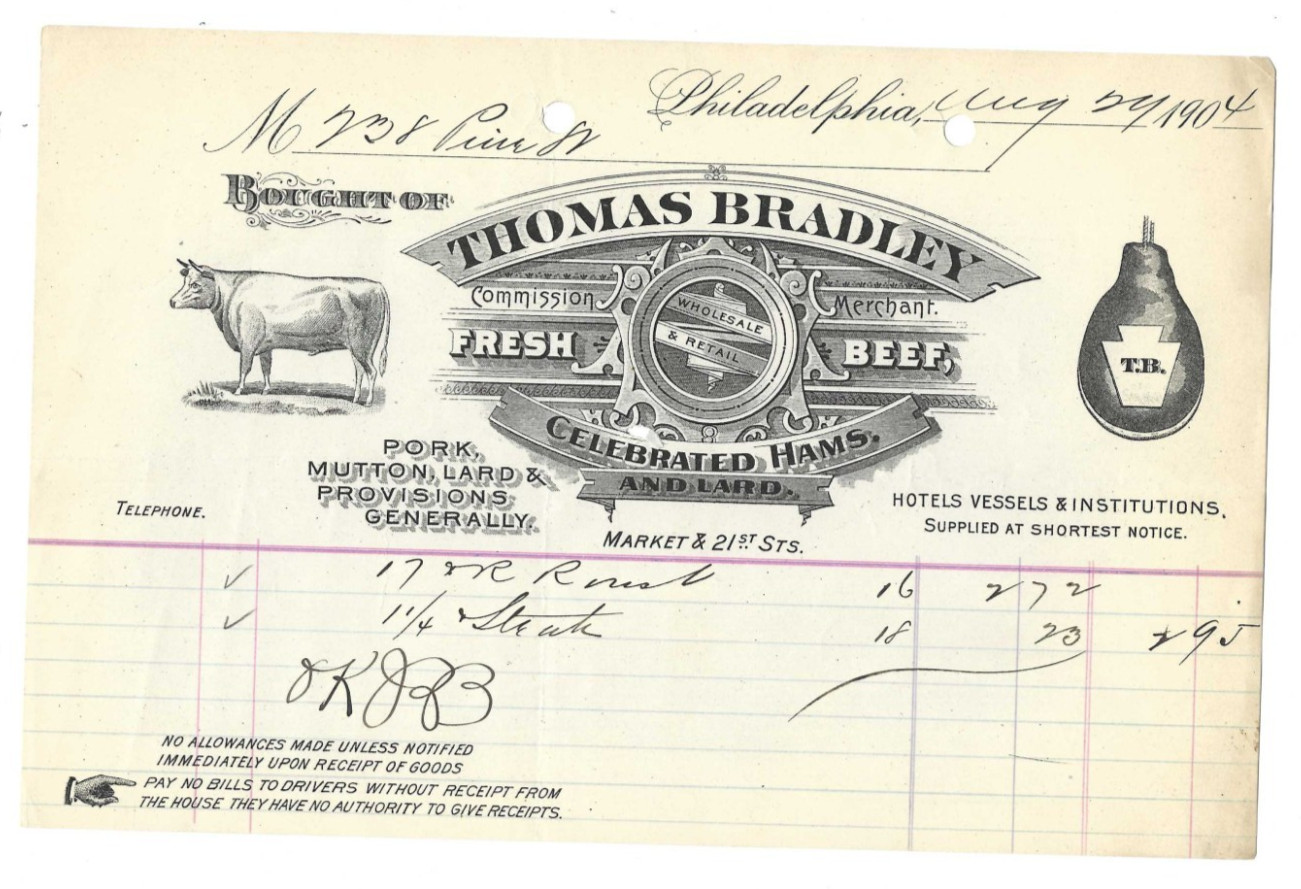 Philadelphia, Aug 29 1904
M 238 Pine St
BOUGHT OF
THOMAS BRADLEY
Commission Merchant.
WHOLESALE
& RETAIL
FRESH BEEF,
T.B.
CELEBRATED HAMS.
AND LARD.
PORK,
MUTTON, LARD &
PROVISIONS
GENERALLY.
TELEPHONE.
HOTELS VESSELS & INSTITUTIONS,
SUPPLIED AT SHORTEST NOTICE.
MARKET & 21ST STS.
17 R Roast 16 2 72
1 1/4 Steak 18 23 2 95
OK
NO ALLOWANCES MADE UNLESS NOTIFIED
IMMEDIATELY UPON RECEIPT OF GOODS
PAY NO BILLS TO DRIVERS WITHOUT RECEIPT FROM
THE HOUSE THEY HAVE NO AUTHORITY TO GIVE RECEIPTS.